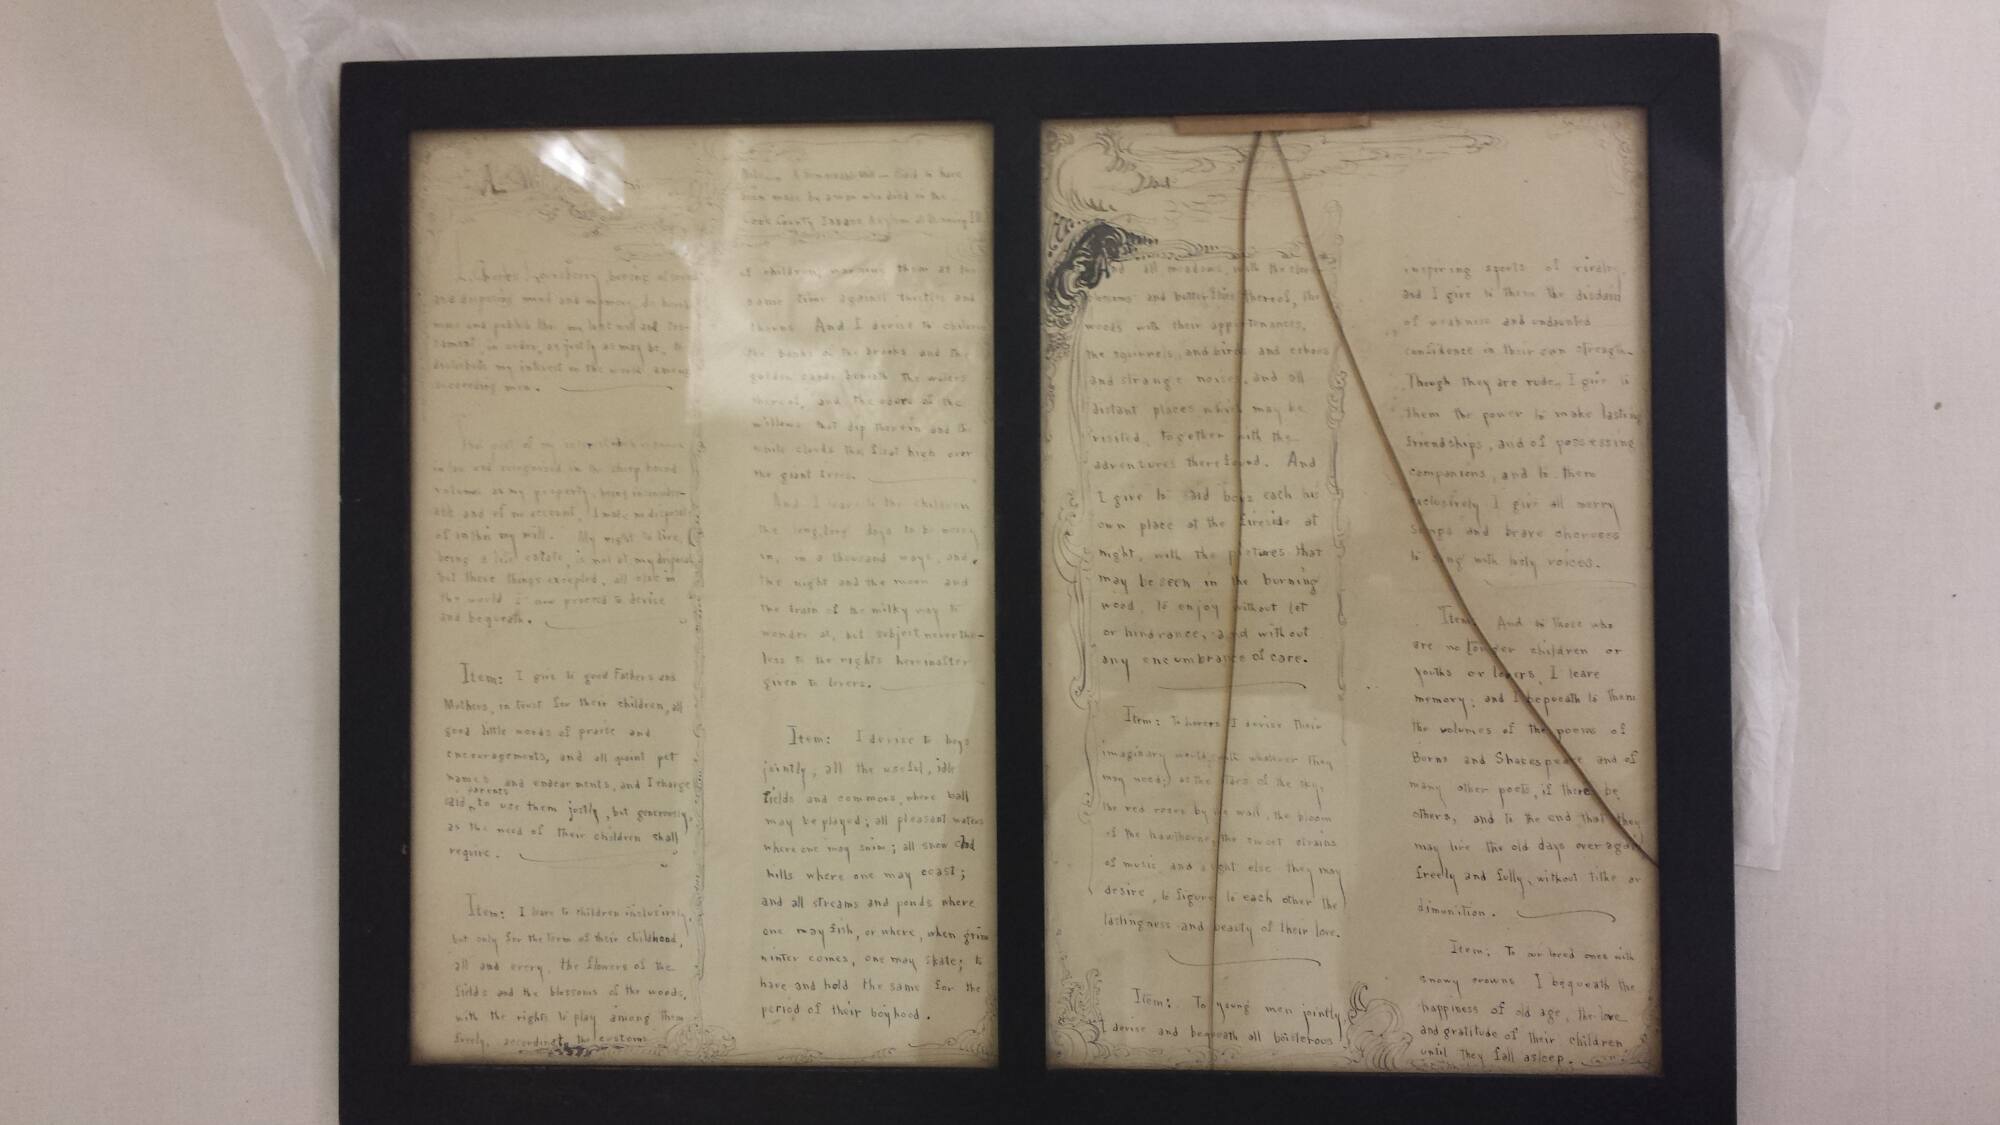 A
Been made by a man who died in the
Cook County Insane Asylum at Dunning Ill
I, Charles Lounsberry, being of
and disposing mind and memory, do hereby
make and publish this my last will and tes-
tament, in order, as justly as may be, to
distribute my interest in the world among
succeeding men.
That part of my
in law and recognized in the sheep bound
volumes as my property, being inconsider-
able and of no account, I make no disposal
of in this my will. My right to live,
being a life estate, is not at my disposal
but these things excepted, all else in
the world I now proceed to devise
and bequeath.
Item: I give to good Fathers and
Mothers, in trust for their children, all
good little words of praise and
encouragements, and all quaint pet
names and endearments, and I charge
said parents to use them justly, but generously,
as the need of their children shall
require.
Item: I leave to children inclusively,
but only for the term of their childhood,
all and every, the flowers of the
fields and the blossoms of the woods,
with the right to play among them
freely, according to the customs
of children, warning them at the
same time against thistles and
thorns. And I devise to children
the banks of the brooks and the
golden sands beneath the waters
thereof, and the odors of the
willows that dip therein and the
white clouds that float high over
the giant trees.
And I leave to the children
the long, long days to be merry
in, in a thousand ways, and
the night and the moon and
the train of the milky way to
wonder at, but subject neverthe-
less to the rights hereinafter
given to lovers.
Item: I devise to boys
jointly, all the useful, idle
fields and commons, where ball
may be played; all pleasant waters
where one may swim; all snow clad
hills where one may coast;
and all streams and ponds where
one may fish, or where, when grim
winter comes, one may skate; to
have and hold the same for the
period of their boyhood.
And all meadows, with the clover
blossoms and butterflies thereof, the
woods with their appurtenances,
the squirrels, and birds and echoes
and strange noises, and all
distant places which may be
visited, together with the
adventures there found. And
I give to said boys each his
own place at the fireside at
night, with the pictures that
may be seen in the burning
wood, to enjoy without let
or hindrance, and without
any encumbrance of care.
Item: To lovers I devise their
imaginary world, with whatever they
may need; as the stars of the sky,
the red roses by the wall, the bloom
of the hawthorne, the sweet strains
of music and aught else they may
desire, to figure to each other the
lastingness and beauty of their love.
Item: To young men jointly,
I devise and bequeath all boisterous
inspiring sports of rivalry,
and I give to them the disdain
of weakness and undaunted
confidence in their own strength.
Though they are rude, I give to
them the power to make lasting
friendships, and of possessing
companions, and to them
exclusively I give all merry
songs and brave choruses
to sing with lusty voices.
Item: And to those who
are no longer children or
youths or lovers, I leave
memory; and I bequeath to them
the volumes of the poems of
Burns and Shakespeare and of
many other poets, if there be
others, and to the end that they
may live the old days over again
freely and fully, without tithe or
dimunition.
Item: To our loved ones with
snowy crowns I bequeath the
happiness of old age, the love
and gratitude of their children
until they fall asleep.